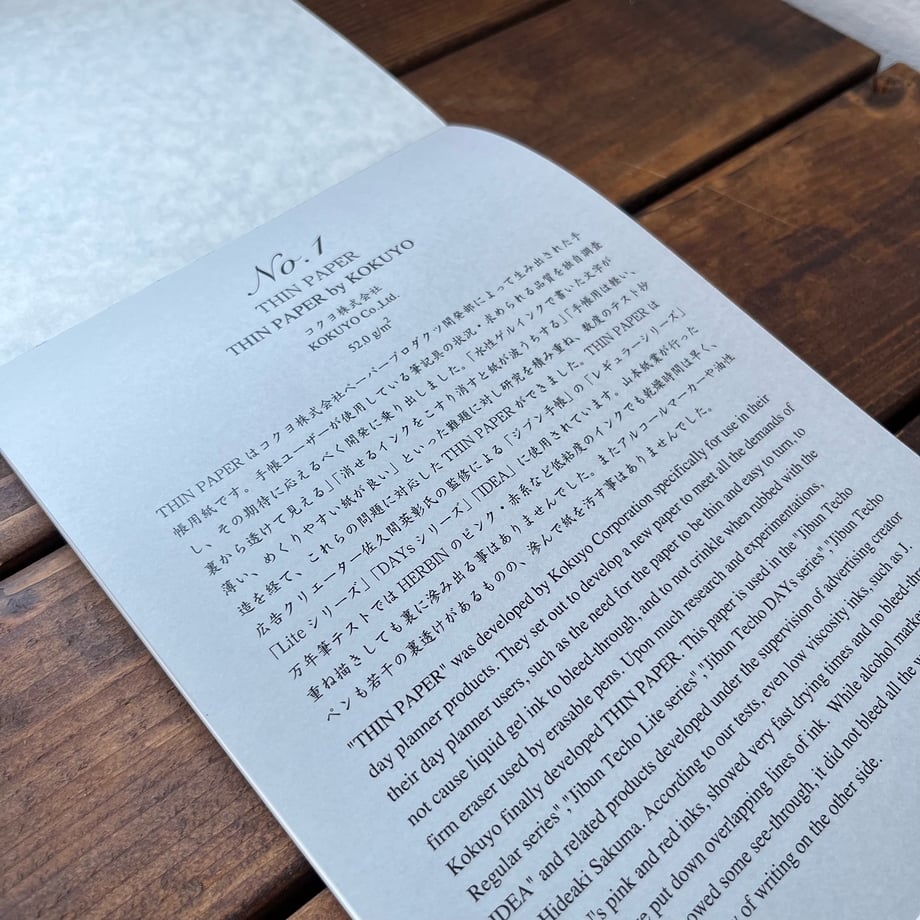 No. 1
THIN PAPER
THIN PAPER by KOKUYO
コクヨ株式会社
KOKUYO Co.,Ltd.
52.0 g/m²
THIN PAPER はコクヨ株式会社ペーパープロダクツ開発部によって生み出された手
帳用紙です。手帳ユーザーが使用している筆記具の状況・求められる品質を独自調査
し、その期待に応えるべく開発に乗り出しました。「水性ゲルインクで書いた文字が
裏から透けて見える」「消せるインクをこすり消すと紙が波うちする」「手帳用は軽い、
薄い、めくりやすい紙が良い」といった難題に対し研究を積み重ね、数度のテスト抄
造を経て、これらの問題に対応した THIN PAPER ができました。THIN PAPER は
広告クリエーター佐久間英彰氏の監修による「ジブン手帳」の「レギュラーシリーズ」
「Lite シリーズ」「DAYs シリーズ」「IDEA」に使用されています。山本紙業が行った
万年筆テストでは HERBIN のピンク・赤系など低粘度のインクでも乾燥時間は早く、
重ね描きしても裏に滲み出る事はありませんでした。またアルコールマーカーや油性
ペンも若干の裏透けがあるものの、滲んで紙を汚す事はありませんでした。
"THIN PAPER" was developed by Kokuyo Corporation specifically for use in their
day planner products. They set out to develop a new paper to meet all the demands of
their day planner users, such as the need for the paper to be thin and easy to turn, to
not cause liquid gel ink to bleed-through, and to not crinkle when rubbed with the
firm eraser used by erasable pens. Upon much research and experimentations,
Kokuyo finally developed THIN PAPER. This paper is used in the "Jibun Techo
Regular series" ,"Jibun Techo Lite series" ,"Jibun Techo DAYs series" ,"Jibun Techo
IDEA" and related products developed under the supervision of advertising creator
Hideaki Sakuma. According to our tests, even low viscosity inks, such as J.
pink and red inks, showed very fast drying times and no
put down overlapping lines of ink. While alcohol
some see-through, it did not bleed all the
of writing on the other side.